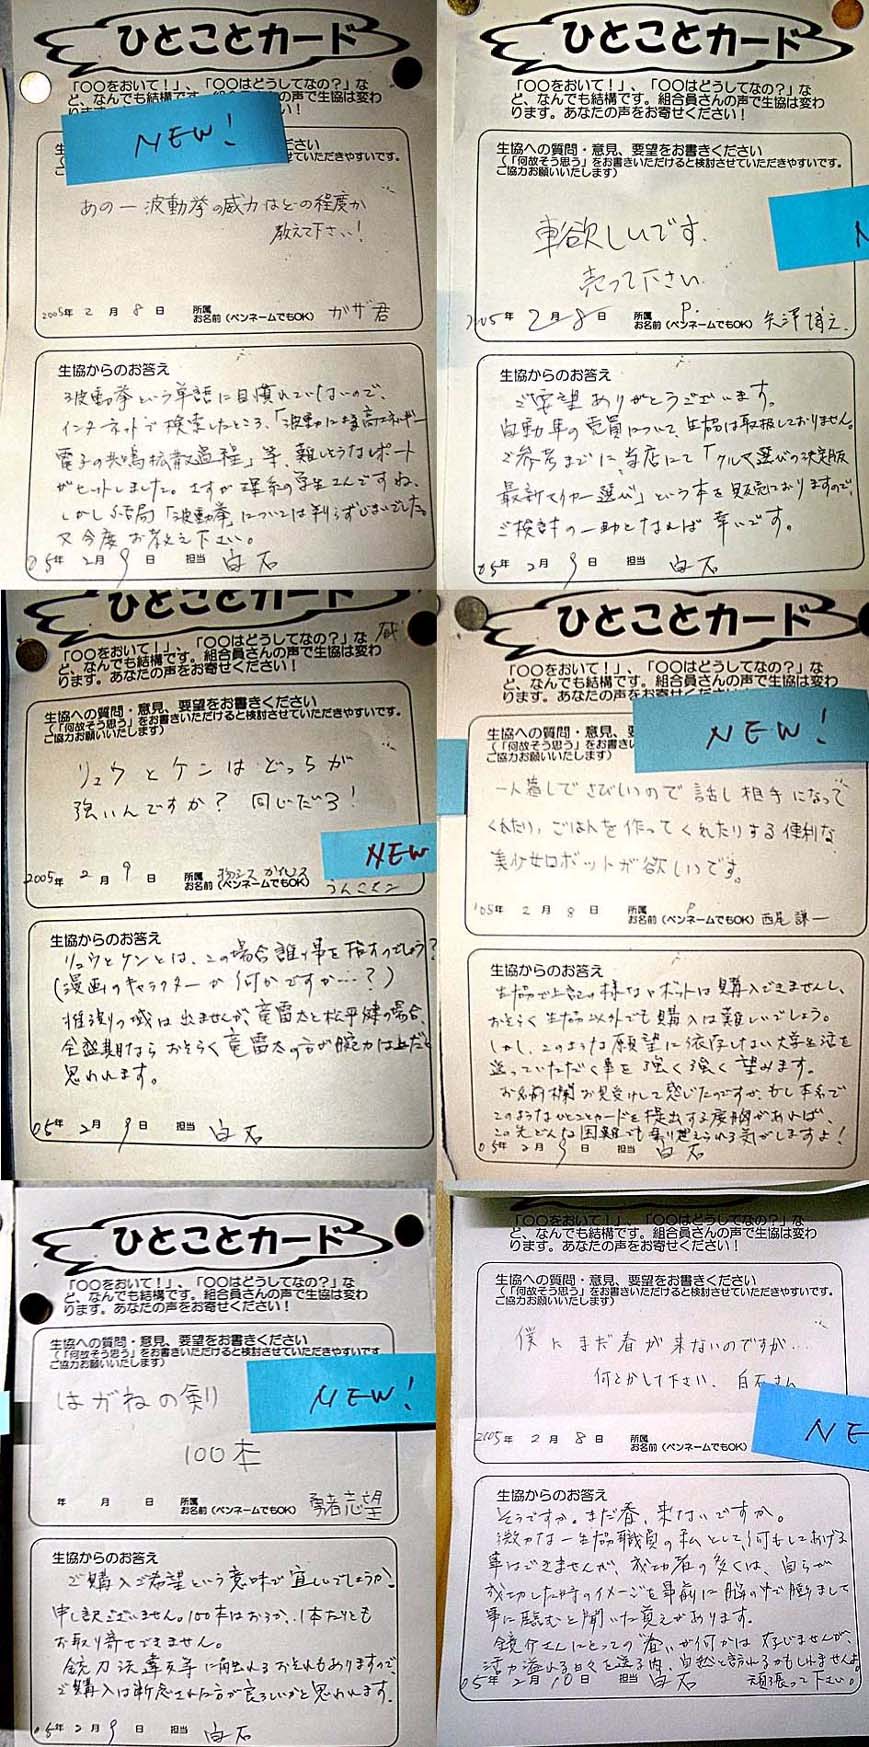 ひとことカード
「〇〇をおいて！」、「〇〇はどうしてなの？」な
ど、なんでも結構です。組
の声で生協は変わ
い！
NEW!
ださい
せていただきやすいです。
あのー波動拳の威力はどの程度か
教えて下さい！
2005年 2月 8日 所属
お名前（ペンネームでもOK） ガザ君
生協からのお答え
波動拳という単語に目慣れていないので、
インターネットで検索したところ、「波動による高エネルギー
電子の共鳴拡散過程」等、難しそうなレポート
がヒットしました。さすが理系の学生さんですね、
しかし結局「波動拳」については判らずじまいでした。
又今度お教え下さい。
05年 2月 9日 担当 白石
ひとことカード
「〇〇をおいて！」、「〇〇はどうしてなの？」な
ど、なんでも結構です。組合員さんの声で生協は変わ
ります。あなたの声をお寄せください！
生協への質問・意見、要望をお書きください
（「何故そう思う」をお書きいただけると検討させていただきやすいです。
ご協力お願いいたします）
N
車欲しいです。
売って下さい
2005年 2月 8日 所属 P.
お名前（ペンネームでもOK） 矢澤
生協からのお答え
ご要望ありがとうございます。
自動車の売買について、生協は取扱しておりません。
ご参考までに、当店にて「クルマ選びの決定版
最新マイカー選び」という本を販売しておりますので、
ご検討の一助となれば幸いです。
05年 2月 9日 担当 白石
ひとことカード
「〇〇をおいて！」、「〇〇はどうしてなの？」な
ど、なんでも結構です。組合員さんの声で生協は変わ
ります。あなたの声をお寄せください！
生協への質問・意見、要望をお書きください
（「何故そう思う」をお書きいただけると検討させていただきやすいです。
ご協力お願いいたします）
リュウとケンはどっちが
強いんですか？ 同じだろ！
NEW
2005年 2月 9日 所属 物シス ガイルス
お名前（ペンネームでもOK）
生協からのお答え
リュウとケンとは、この場合誰の事を指すのでしょう？
（漫画のキャラクターか何かですか…？）
推測の域は出ませんが、竜雷太と松平健の場合、
全盛期ならおそらく竜雷太の方が腕力は上だと
思われます。
05年 2月 9日 担当 白石
ひとことカード
「〇〇をおいて！」、「〇〇はどうしてなの？」な
ど、なんでも結構です。組合員さんの声で生協は変わ
ります。あなたの声をお寄せくだ
生協への質問・意見、要
（「何故そう思う」をお書
ご協力お願いいたします）
NEW!
一人暮しでさびしいので話し相手になって
くれたり、ごはんを作ってくれたりする便利な
美少女ロボットが欲しいです。
'05年 2月 8日 所属 P
お名前（ペンネームでもOK） 西尾謙一
生協からのお答え
生協で上記の様なロボットは購入できませんし、
おそらく生協以外でも購入は難しいでしょう。
しかし、このような願望に依存しない大学生活を
送っていただく事を強く強く望みます。
お名前欄お見受けして感じたのですが、もし本名で
このようなひとことカードを提出する度胸があれば、
この先どんな困難でも乗り越えられる気がしますよ！
05年 2月 9日 担当 白石
ひとことカード
「〇〇をおいて！」、「〇〇はどうしてなの？」な
ど、なんでも結構です。組合員さんの声で生協は変わ
ります。あなたの声をお寄せください！
生協への質問・意見、要望をお書きください
（「何故そう思う」をお書きいただけると検討させていただきやすいです。
ご協力お願いいたします）
NEW!
はがねの剣
100本
年 月 日 所属
お名前（ペンネームでもOK） 勇者志望
生協からのお答え
ご購入ご希望という意味で宜しいでしょうか？
申し訳ございません。100本はおろか、1本たりとも
お取り寄せできません。
銃刀法違反等に触れるおそれもありますので、
ご購入は断念された方が良ろしいかと思われます。
05年 2月 9日 担当 白石
「〇〇をおいて！」、「〇〇はどうしてなの？」な
ど、なんでも結構です。組合員さんの声で生協は変わ
ります。あなたの声をお寄せください！
生協への質問・意見、要望をお書きください
（「何故そう思う」をお書きいただけると検討させていただきやすいです。
ご協力お願いいたします）
僕にまだ春が来ないのですが…
何とかして下さい、白石さん
NE
2005年 2月 8日 所属
お名前（ペンネームでもOK）
生協からのお答え
そうですか。まだ春、来ないですか。
微力な一生協職員の私として、何もしてあげる
事はできませんが、成功者の多くは、自らが
成功した時のイメージを事前に脳の中で膨らまして
事に臨むと聞いた覚えがあります。
鏡介さんにとっての"春"が何かは存じませんが、
活力溢れる日々を送る内、自然と訪れるかもしれませんよ。
頑張って下さい。
05年 2月 10日 担当 白石